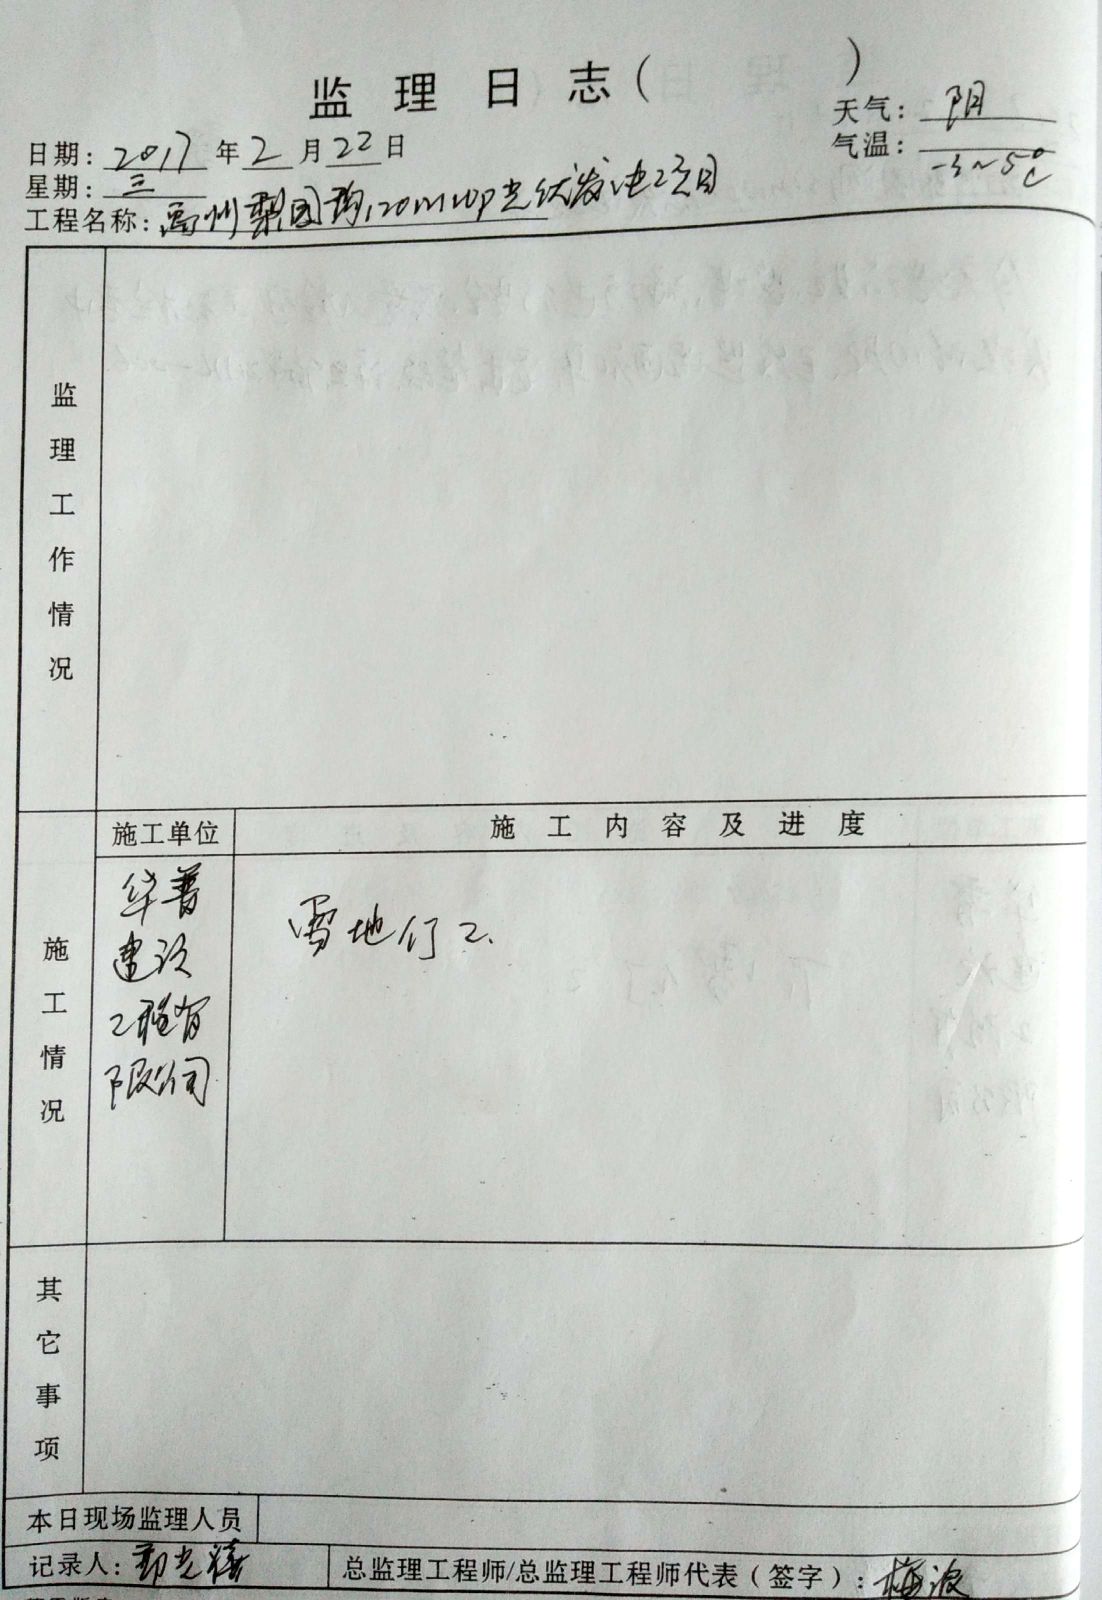 监理日志( )
天气: 阴
日期: 2017 年 2 月 22 日
气温: -3~5℃
星期: 三
工程名称: 禹州梨园沟120MWp光伏发电工项目
监理工作情况
施工单位
施工内容及进度
施工情况
华普
建设
工程有
限公司
雪地停工.
其它事项
本日现场监理人员
记录人:
总监理工程师/总监理工程师代表(签字): 梅波